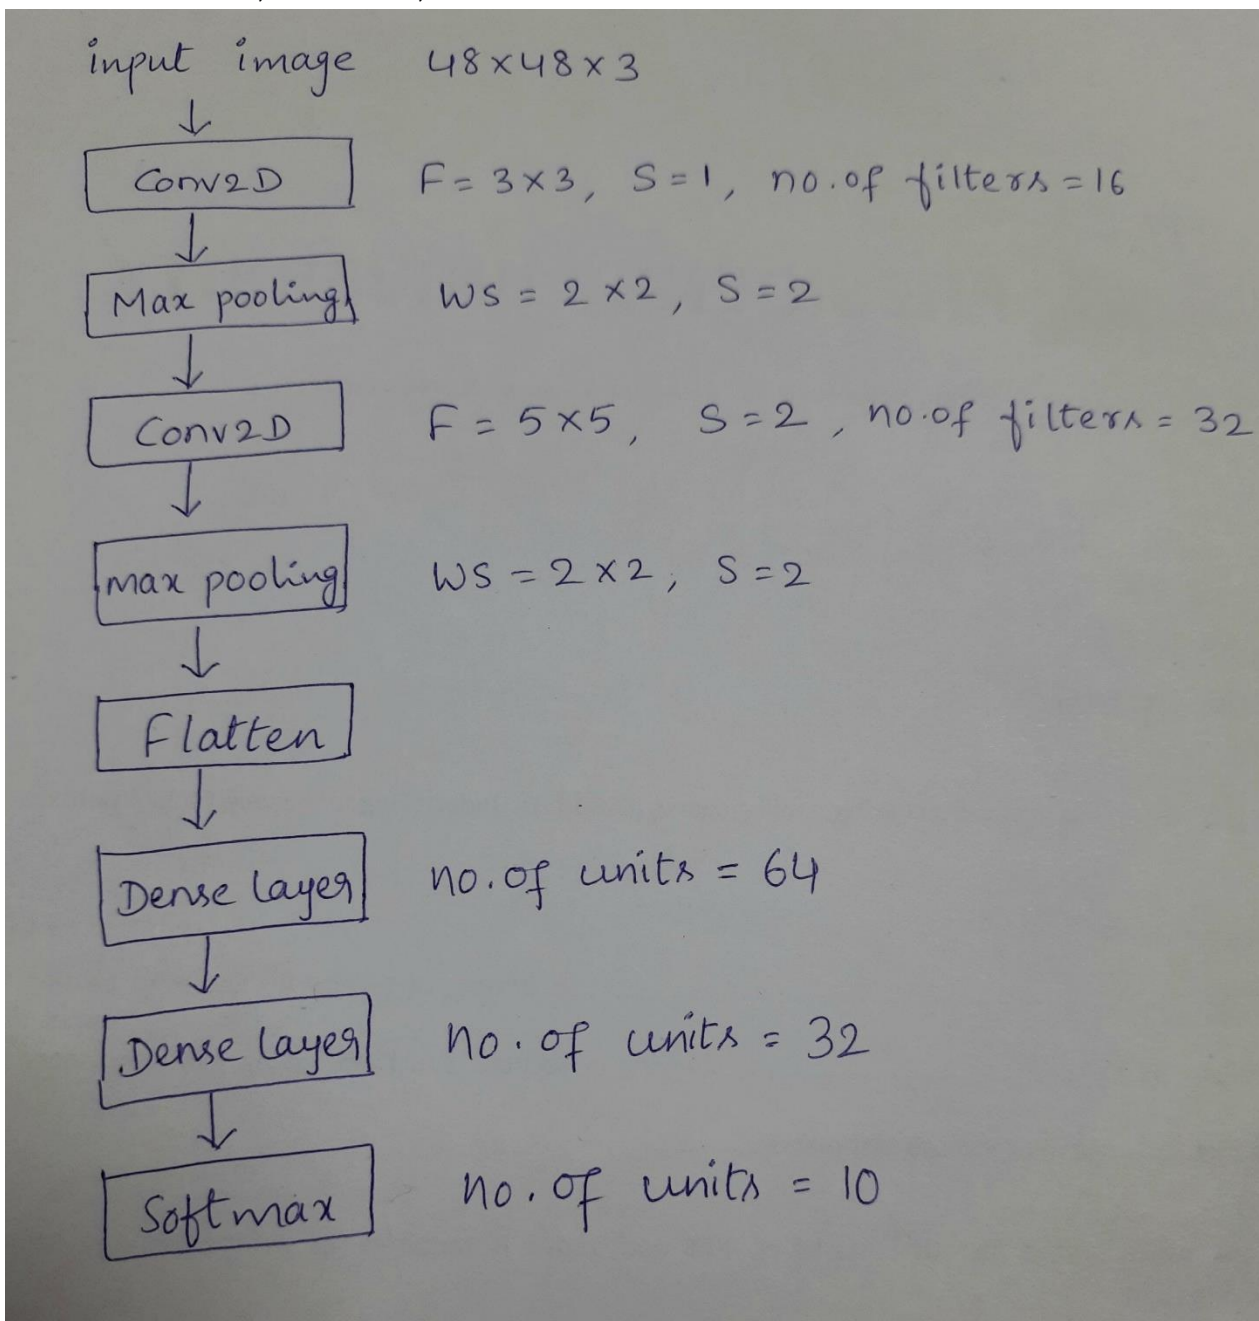 input image 48×48×3
Conv2D F = 3×3, S=1, no.of filters = 16
Max pooling WS = 2×2, S=2
Conv2D F = 5×5, S=2, no.of filters = 32
max pooling WS = 2×2, S=2
Flatten
Dense layer no.of units = 64
Dense layer no.of units = 32
Softmax no.of units = 10